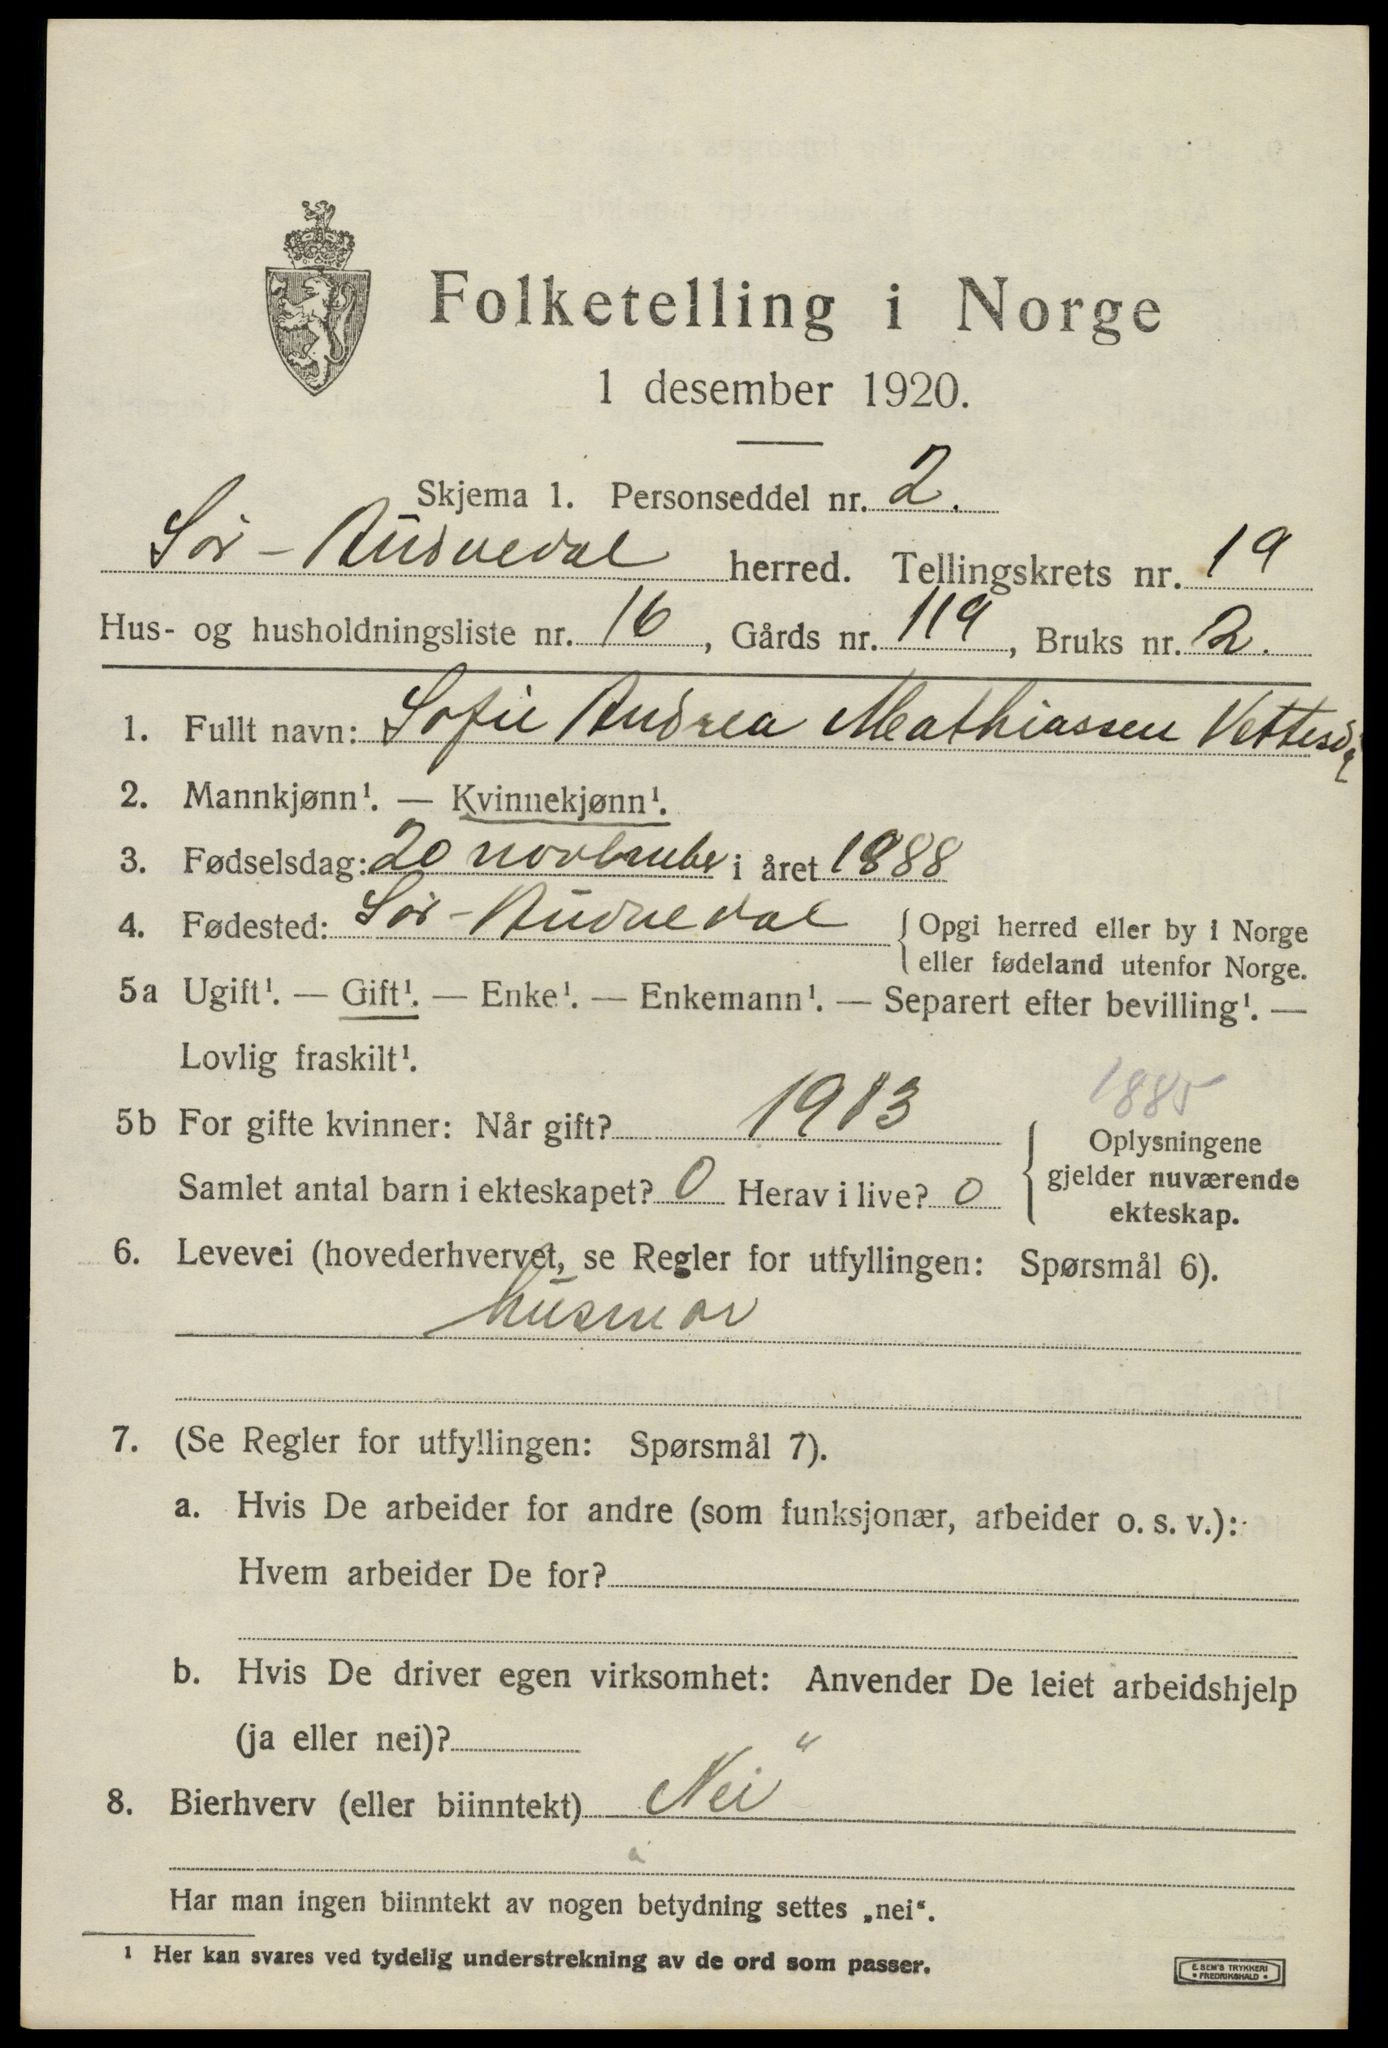 Folketelling i Norge
1 desember 1920.
Skjema 1. Personseddel nr. 2.
Sör-Audnedal herred. Tellingskrets nr. 19
Hus- og husholdningsliste nr. 16, Gårds nr. 119, Bruks nr. 2.
1. Fullt navn: Sofie Andrea Mathiassen
2. Mannkjønn¹. — Kvinnekjønn¹.
3. Fødselsdag: 20 november i året 1888
4. Fødested: Sör-Audnedal { Opgi herred eller by i Norge
eller fødeland utenfor Norge.
5a Ugift¹. — Gift¹. — Enke¹. — Enkemann¹. — Separert efter bevilling¹. —
Lovlig fraskilt¹.
1885
5b For gifte kvinner: Når gift? 1913 { Oplysningene
gjelder nuværende
ekteskap.
Samlet antal barn i ekteskapet? 0 Herav i live? 0
6. Levevei (hovederhvervet, se Regler for utfyllingen: Spørsmål 6).
husmor
7. (Se Regler for utfyllingen: Spørsmål 7).
a. Hvis De arbeider for andre (som funksjonær, arbeider o. s. v.):
Hvem arbeider De for?
b. Hvis De driver egen virksomhet: Anvender De leiet arbeidshjelp
(ja eller nei)?
8. Bierhverv (eller biinntekt) Nei"
Har man ingen biinntekt av nogen betydning settes „nei“.
¹ Her kan svares ved tydelig understrekning av de ord som passer.
E. SEM'S TRYKKERI
• FREDRIKSHALD •